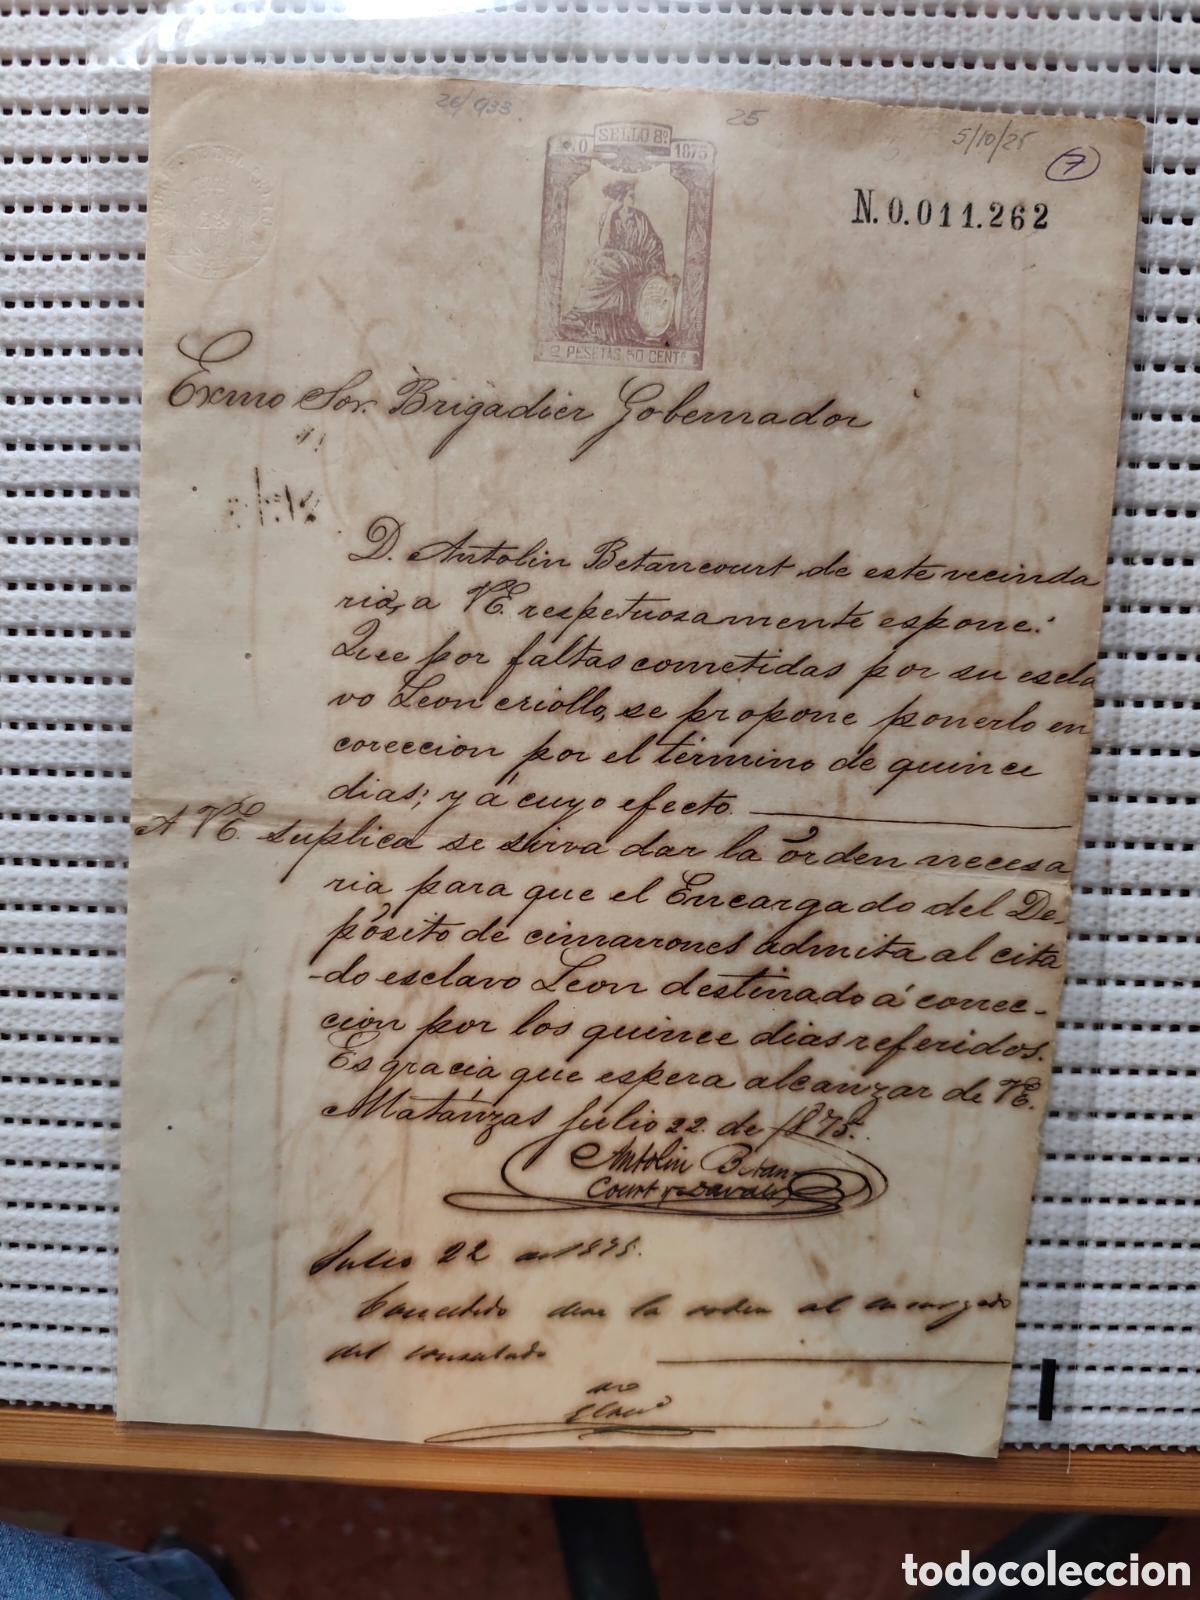 26/933
25
5/10/25
7
SELLO 8º
1875
N.0.011.262
2 PESETAS 50 CENTS
Exmo Sor. Brigadier Gobernador
D. Antolin Betancourt, de este vecinda
rio, a VE. respetuosamente espone:
Que por faltas cometidas por su escla
vo Leon criollo, se propone ponerlo en
coreccion por el término de quince
dias; y á cuyo efecto.
A VE. suplica se sirva dar la órden necesa
ria para que el Encargado del De-
pósito de cimarrones admita al cita
-do esclavo Leon destinado á correc-
cion por los quince dias referidos.
Es gracia que espera alcanzar de VE.
Matánzas Julio 22. de 1875.
Antolin Betan-
court y
Julio 22 de 1875.
Concedido dese la orden al encargado
del
todocoleccion